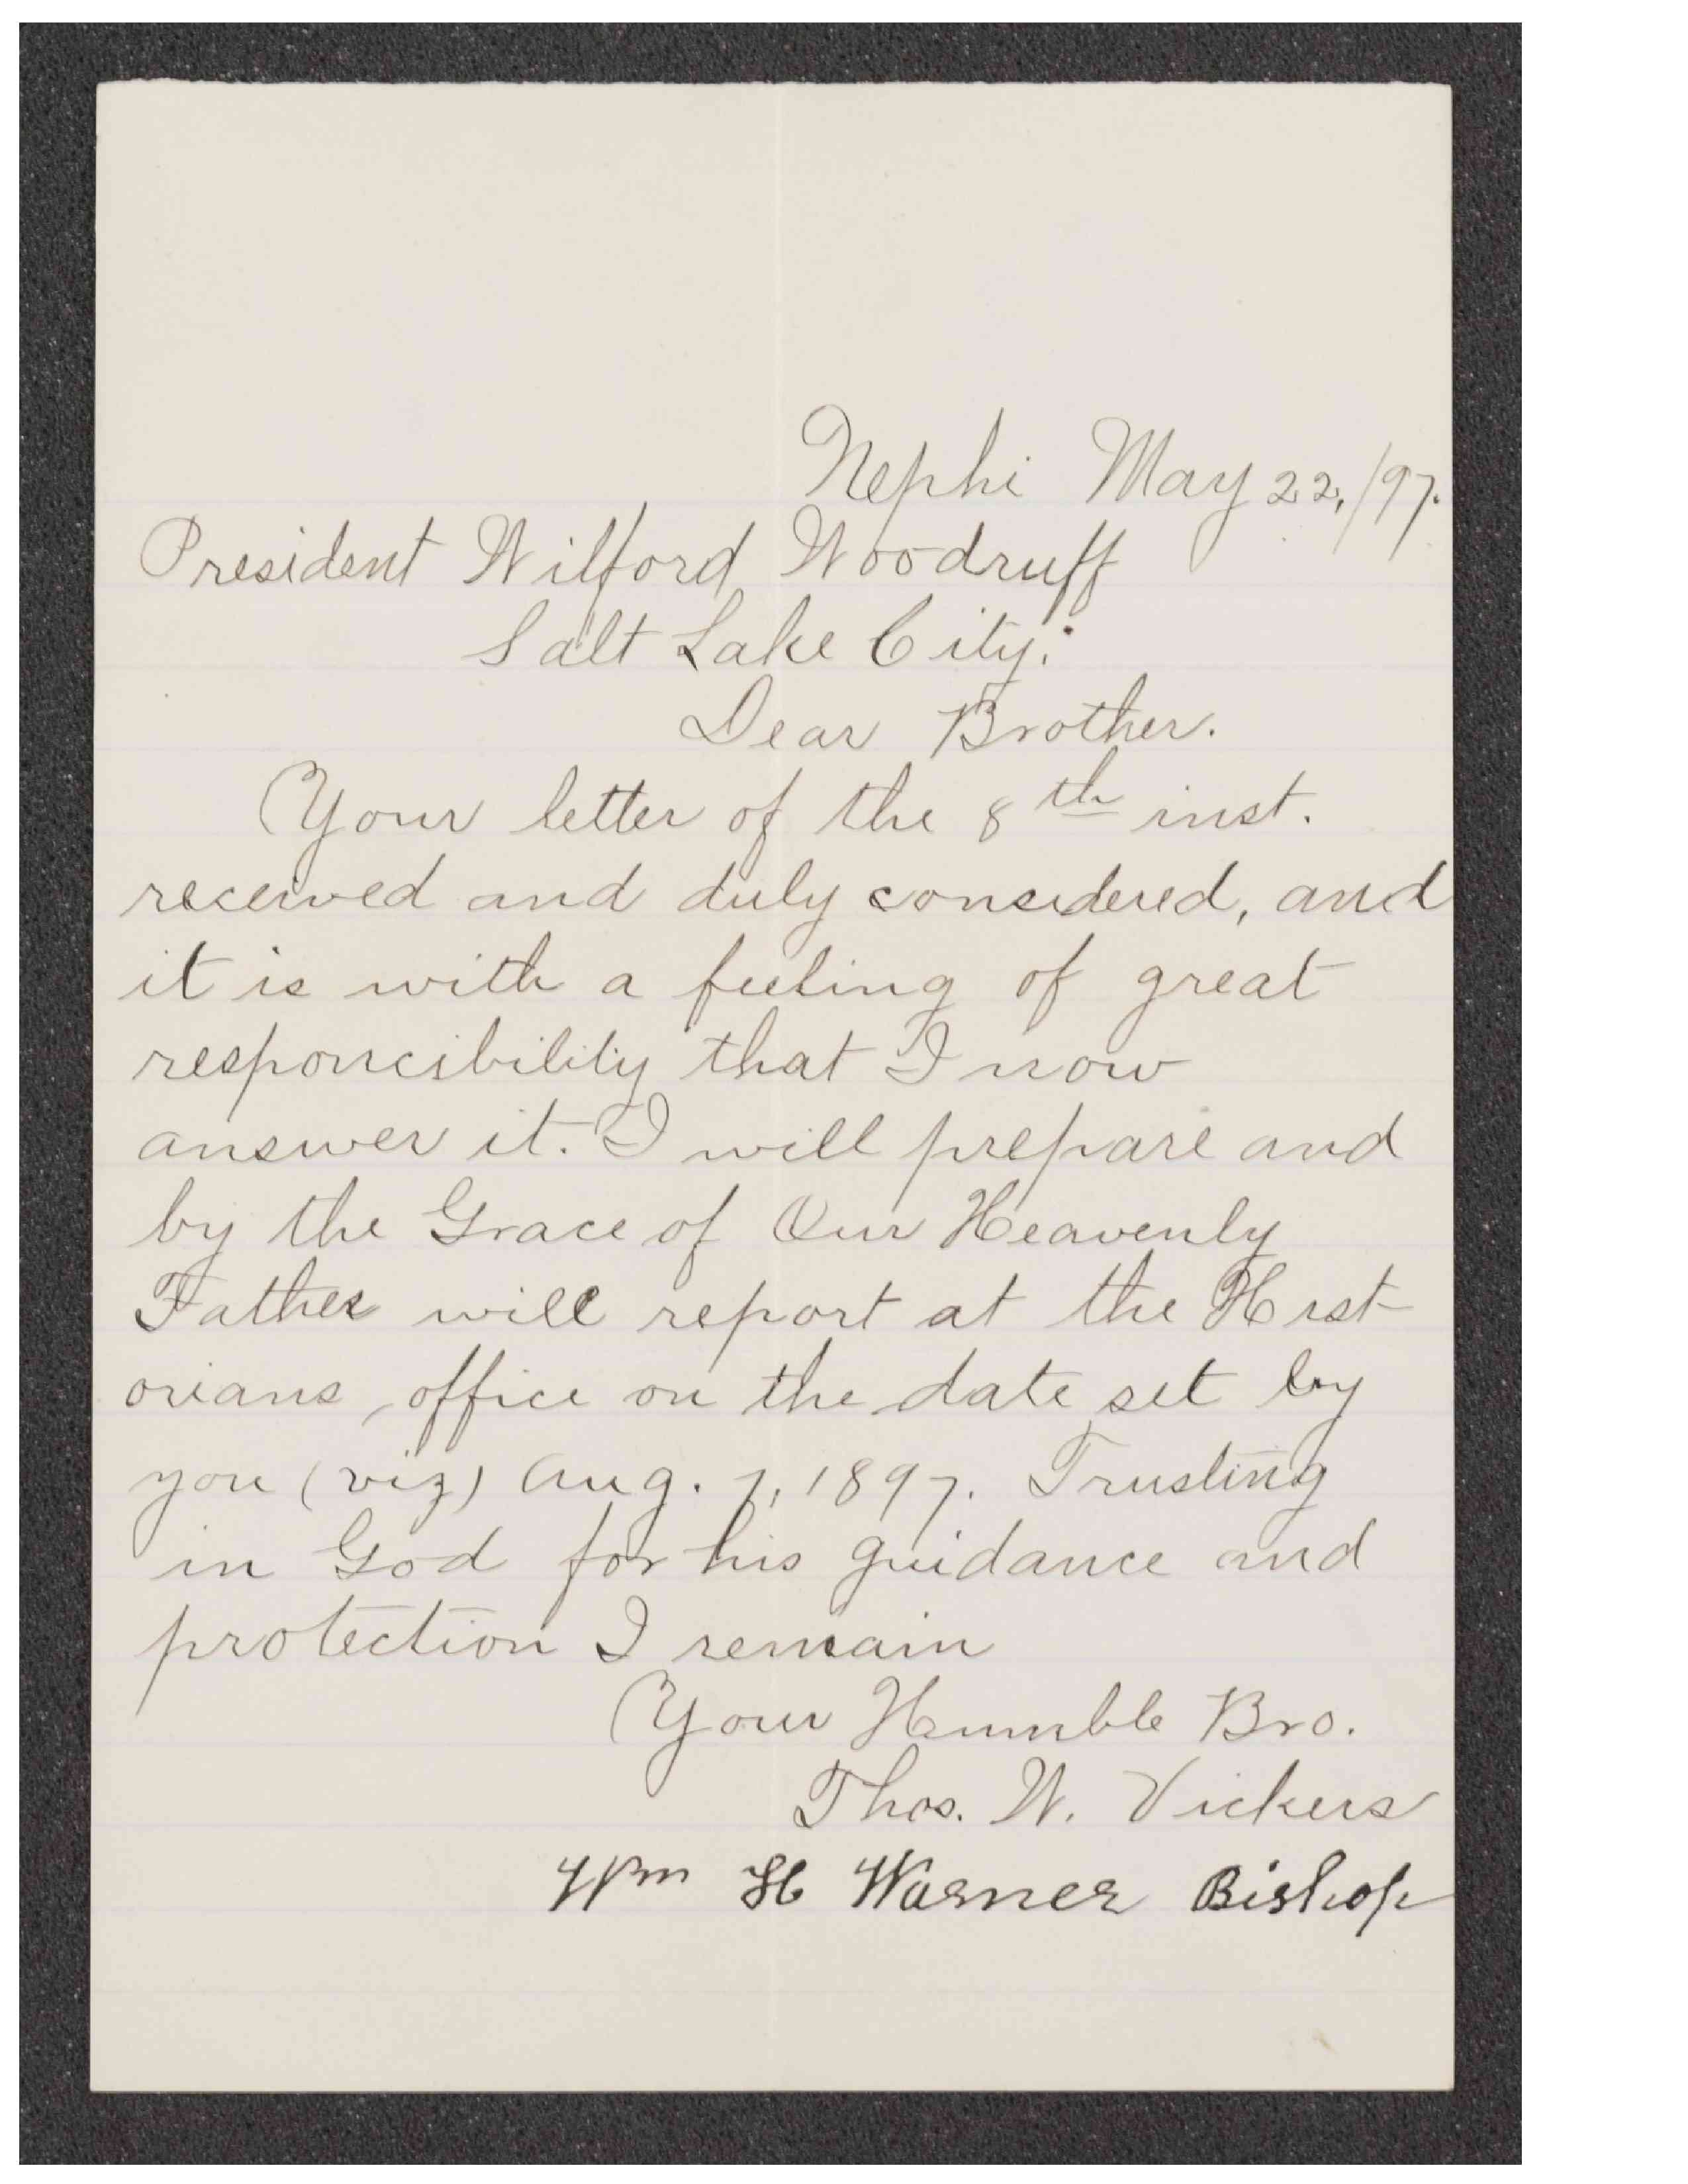 Nephi May 22, /97.
President Wilford Woodruff
Salt Lake City:
Dear Brother.
Your letter of the 8th inst.
received and duly considered, and
it is with a feeling of great
responcibility that I now
answer it. I will prepare and
by the Grace of Our Heavenly
Father will report at the Hist
orians, office on the date set by
you (viz) Aug. 7, 1897. Trusting
in God for his guidance and
protection I remain
Your Humble Bro.
Thos. W. Vickers
Wm H Warner Bishop